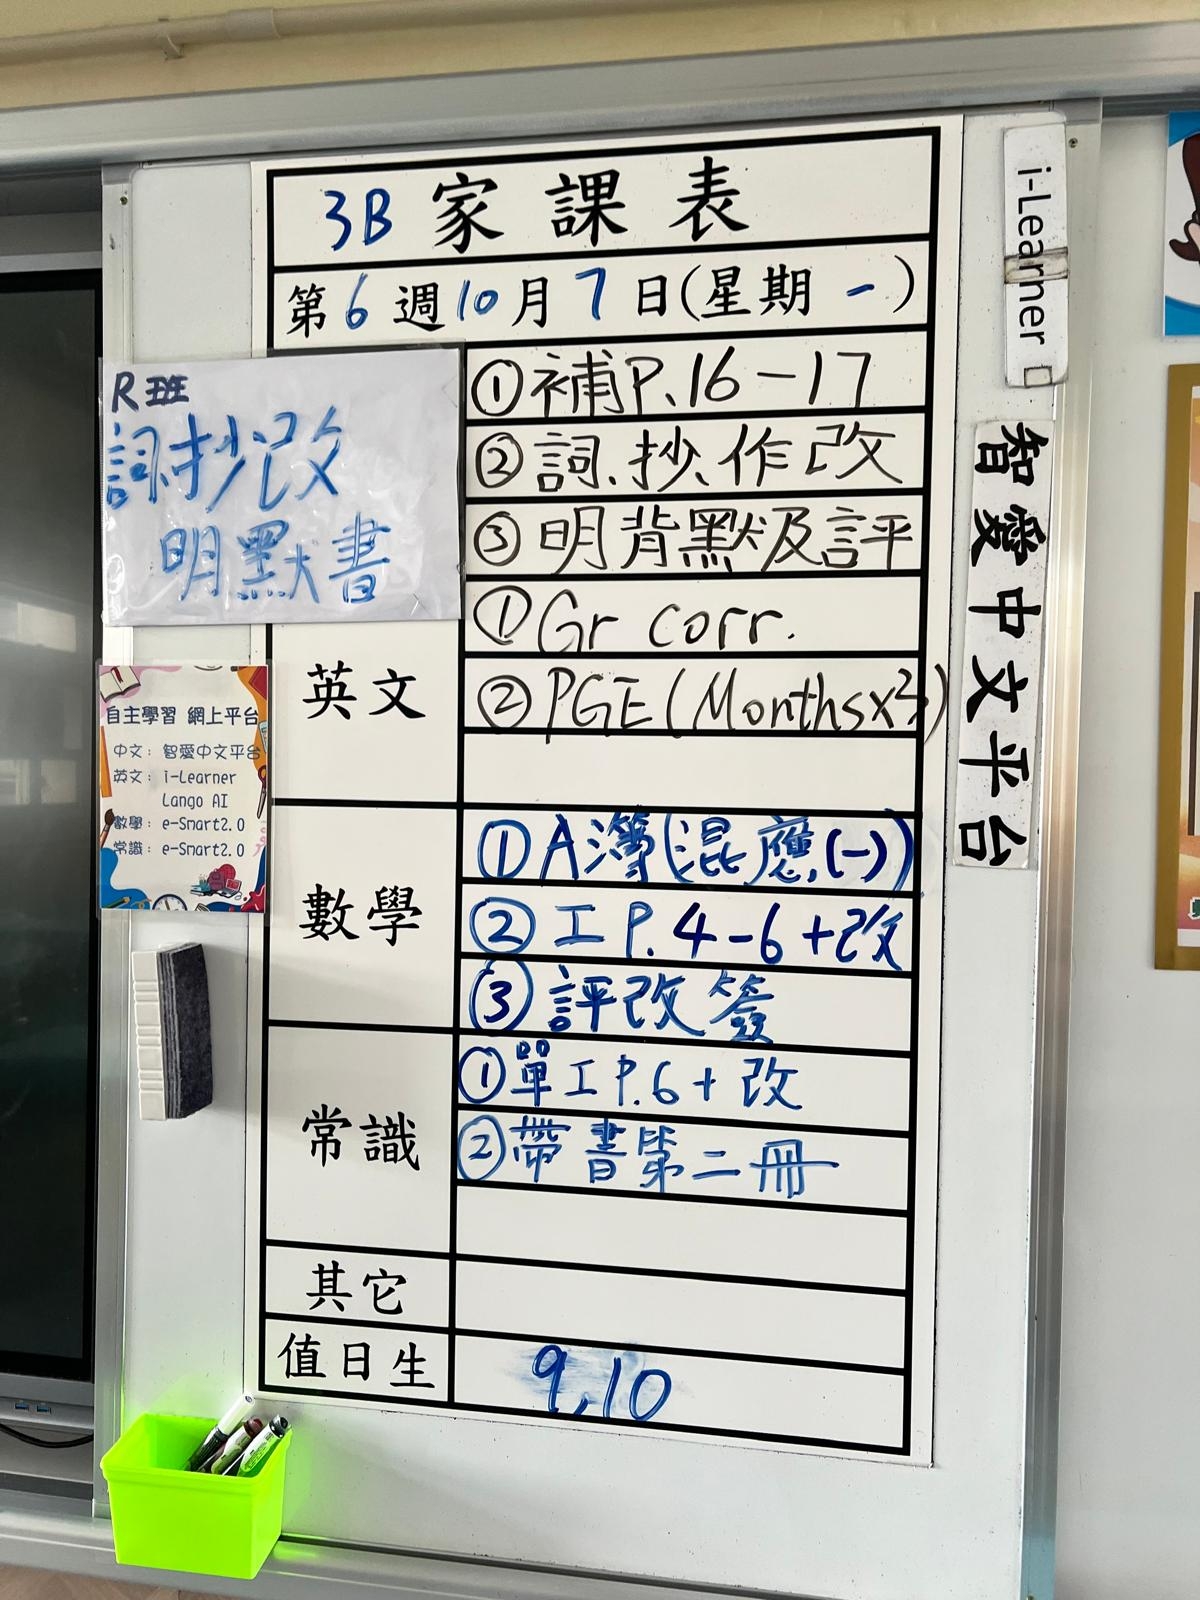 3B 家課表
第6週10月7日(星期一)
R班
詞抄改
明默書
①補P.16-17
②詞.抄.作改
③明背默及評
英文
①Gr corr.
②PGE(Monthsx3)
數學
①A簿(混應.(一))
②工P.4-6+改
③評改簽
常識
①單工P.6+改
②帶書第二冊
其它
值日生
9,10
自主學習 網上平台
中文：智愛中文平台
英文：i-Learner
Lango AI
數學：e-Smart2.0
常識：e-Smart2.0
i-Learner
智愛中文平台